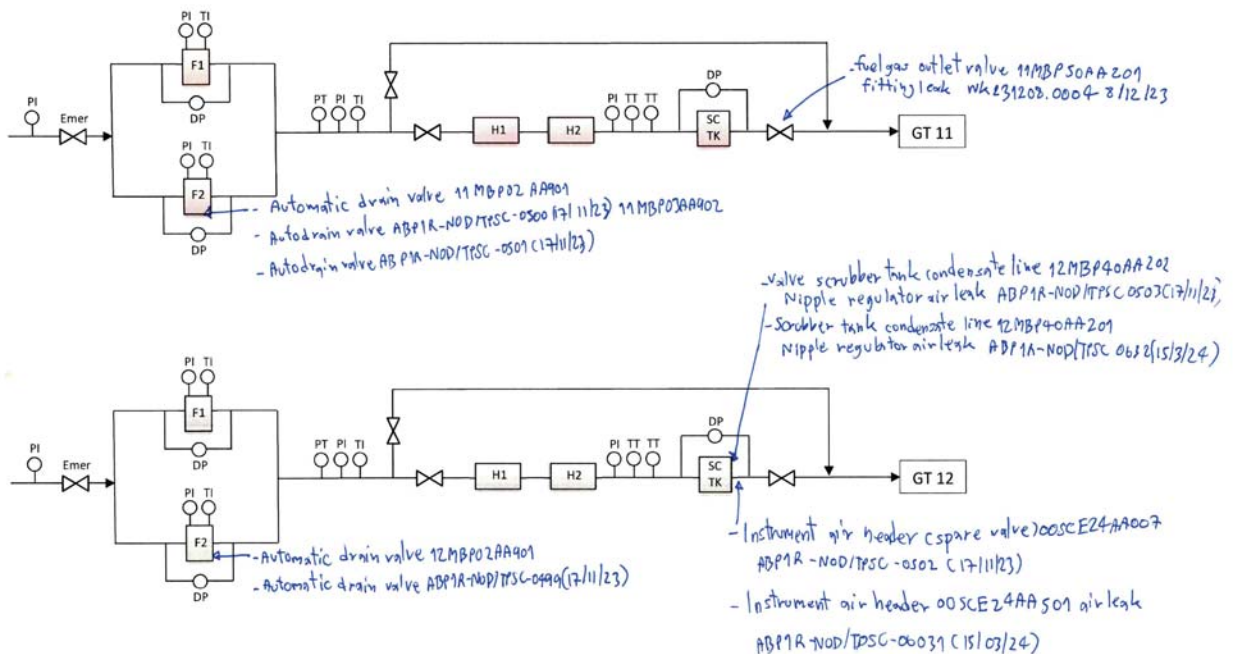 PI TI
F1
DP
PI
Emer
PI TI
F2
DP
PT PI TI
H1
H2
PI TT TT
DP
SC
TK
GT 11
- fuel gas outlet valve 11MBP50AA201
fitting leak Wk231208.0004 8/12/23
- Automatic drain valve 11MBP02 AA901
- Autodrain valve ABP1R-NOD/TPSC-0500 (17/11/23) 11MBP03AA902
- Autodrain valve ABP1R-NOD/TPSC-0501 (17/11/23)
- valve scrubber tank condensate line 12MBP40AA202
Nipple regulator air leak ABP1R-NOD/TPSC 0503(17/11/23)
- Scrubber tank condensate line 12MBP40AA201
Nipple regulator air leak ABP1R-NOD/TPSC 0632(15/3/24)
PI TI
F1
DP
PI
Emer
PI TI
F2
DP
PT PI TI
H1
H2
PI TT TT
DP
SC
TK
GT 12
- Automatic drain valve 12MBP02AA901
- Automatic drain valve ABP1R-NOD/TPSC-0499(17/11/23)
- Instrument air header (spare valve) 00SCE24AA007
ABP1R-NOD/TPSC-0502 (17/11/23)
- Instrument air header 00SCE24AA501 air leak
ABP1R-NOD/TPSC-06031 (15/03/24)